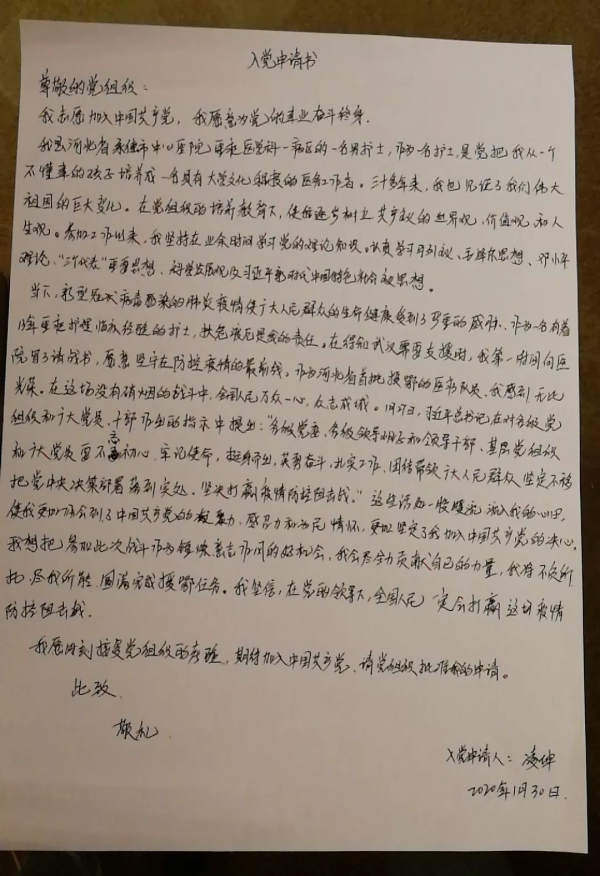 入党申请书
尊敬的党组织：
我志愿加入中国共产党，我愿意为党的事业奋斗终身。
我是河北省承德市中心医院重症医学科一病区的一名男护士，作为一名护士，是党把我从一个
不懂事的孩子培养成一名具有大学文化程度的医务工作者。三十多年来，我也见证了我们伟大
祖国的巨大变化。在党组织的培养教育下，使我逐步树立共产主义的世界观、价值观和人
生观。参加工作以来，我坚持在业余时间学习党的理论知识。认真学习马列主义、毛泽东思想、邓小平
理论、“三个代表”重要思想、科学发展观及习近平新时代中国特色社会主义思想。
当下，新型冠状病毒感染的肺炎疫情使广大人民群众的生命健康受到了严重的威胁，作为一名有着
13年重症护理临床经验的护士，救危扶困是我的责任。在得知武汉需要支援时，我第一时间向医
院写了请战书，愿意坚守在防控疫情的最前线。作为河北省首批援鄂的医务队员，我感到无比
光荣。在这场没有硝烟的战斗中，全国人民万众一心，众志成城。1月27日，习近平总书记在对各级党
组织和广大党员、干部作出的指示中提出：“各级党委、各级领导班子和领导干部、基层党组织
和广大党员要不忘初心、牢记使命，挺身而出，英勇奋斗，扎实工作，团结带领广大人民群众坚定不移
把党中央决策部署落到实处，坚决打赢疫情防控阻击战。”这些话如一股暖流流入我的心田，
使我更加体会到了中国共产党的凝聚力、感召力和为民情怀，更加坚定了我加入中国共产党的决心。
我想把参加此次战斗作为锤炼意志作风的好机会，我会尽全力贡献自己的力量，我将不负所
托，尽我所能，圆满完成援鄂任务。我坚信，在党的领导下，全国人民一定会打赢这场疫情
防控阻击战。
我愿时刻接受党组织的考验，期待加入中国共产党，请党组织批准我的申请。
此致
敬礼
入党申请人：凌伸
2020年1月30日.